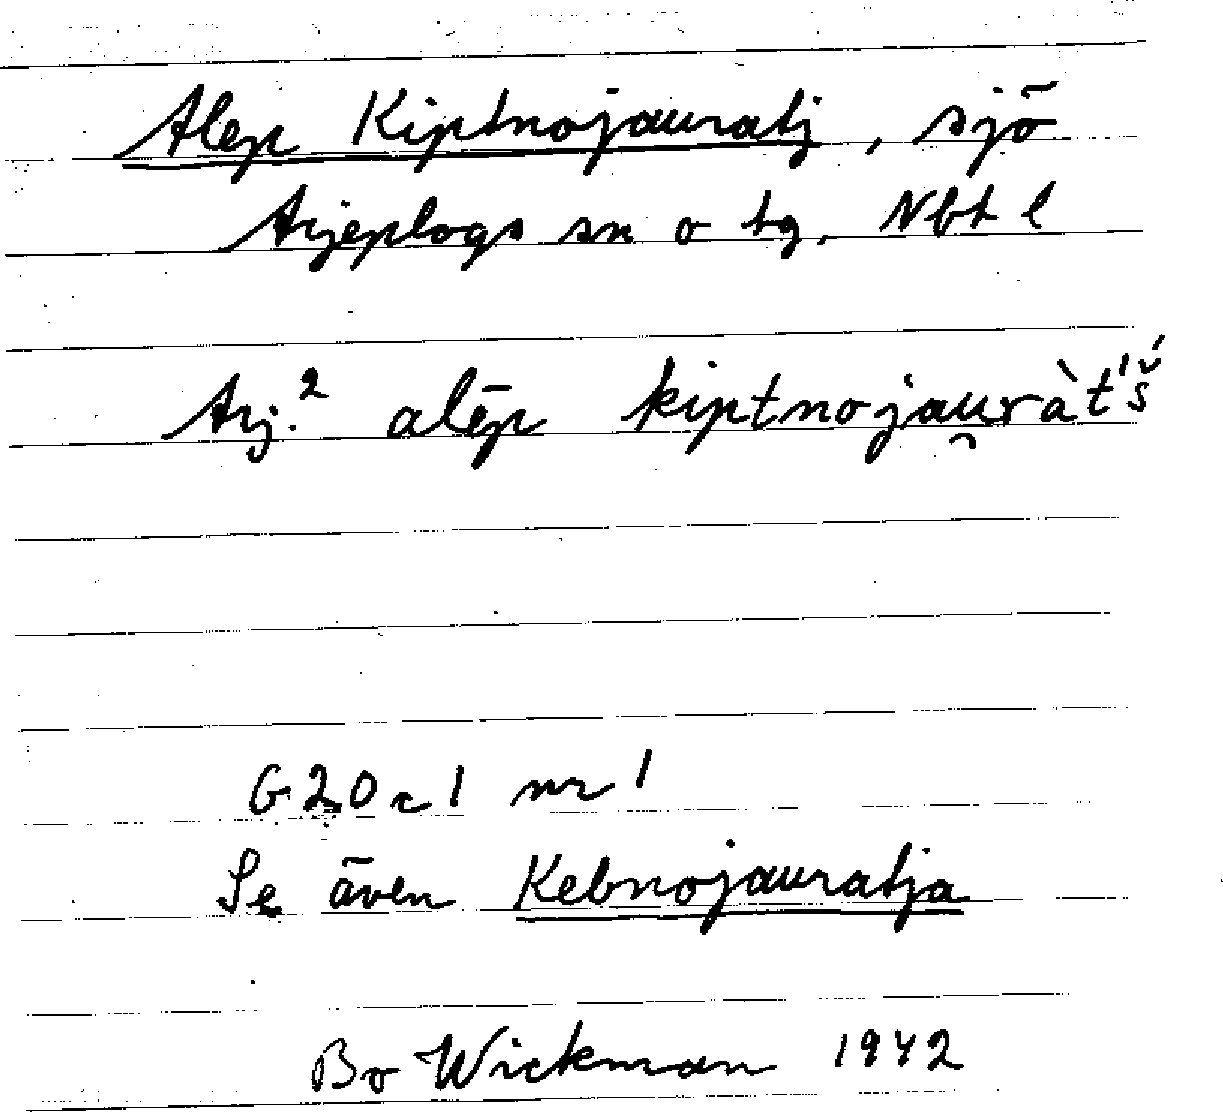 Alep Kiptnojauratj, sjö
Arjeplogs sn o tg, Nbt l
Arj.² alēp kiptnojau̯ràt'š́
G20c1 nr 1
Se även Kebnojauratja
Bo Wickman 1942